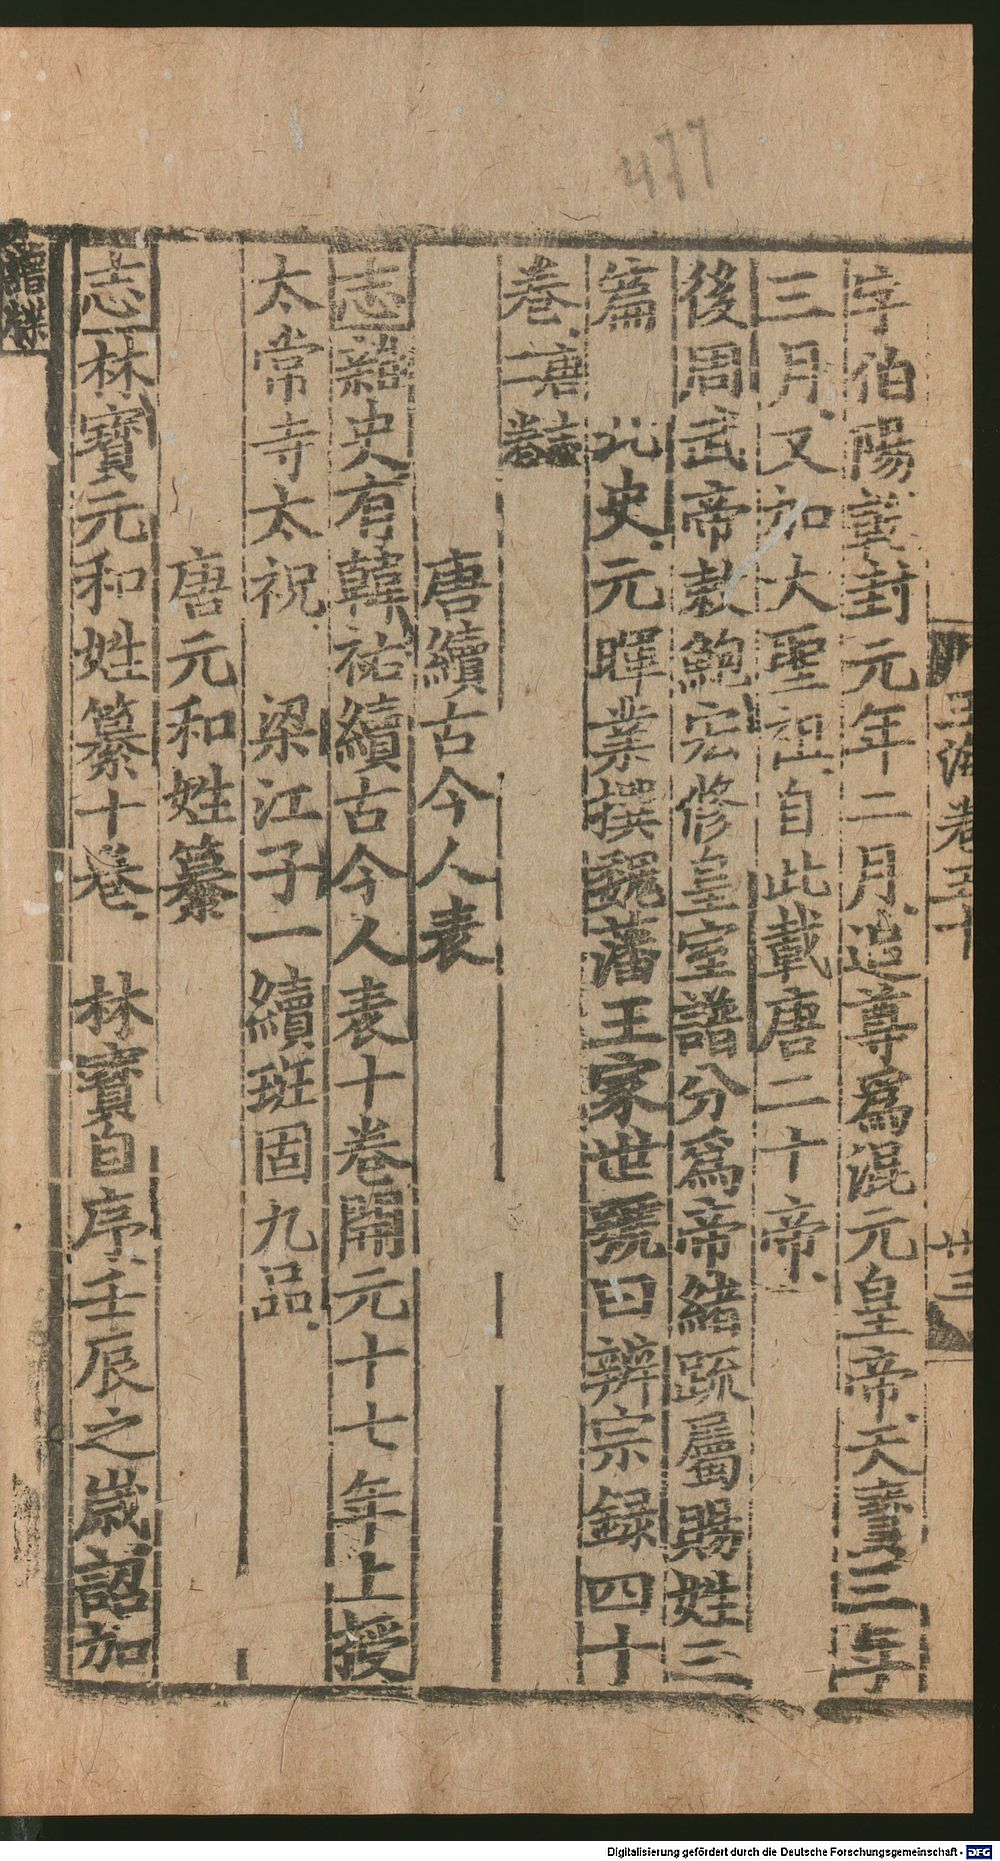 477
玉海卷五十
廿三
字伯陽冀封元年二月追尊爲混元皇帝天寶三年
三月又加大聖祖自此載唐二十帝
後周武帝敕鮑宏修皇室譜分爲帝緒疏屬賜姓三
篇 北史元暉業撰魏藩王家世號曰辨宗録四十
卷唐志二卷
唐續古今人表
志譜史有韓祐續古今人表十卷開元十七年上授
太常寺太祝 梁江子一續班固九品
唐元和姓纂
志林寶元和姓纂十卷 林寶自序壬辰之歲詔加
譜牒
Digitalisierung gefördert durch die Deutsche Forschungsgemeinschaft - DFG